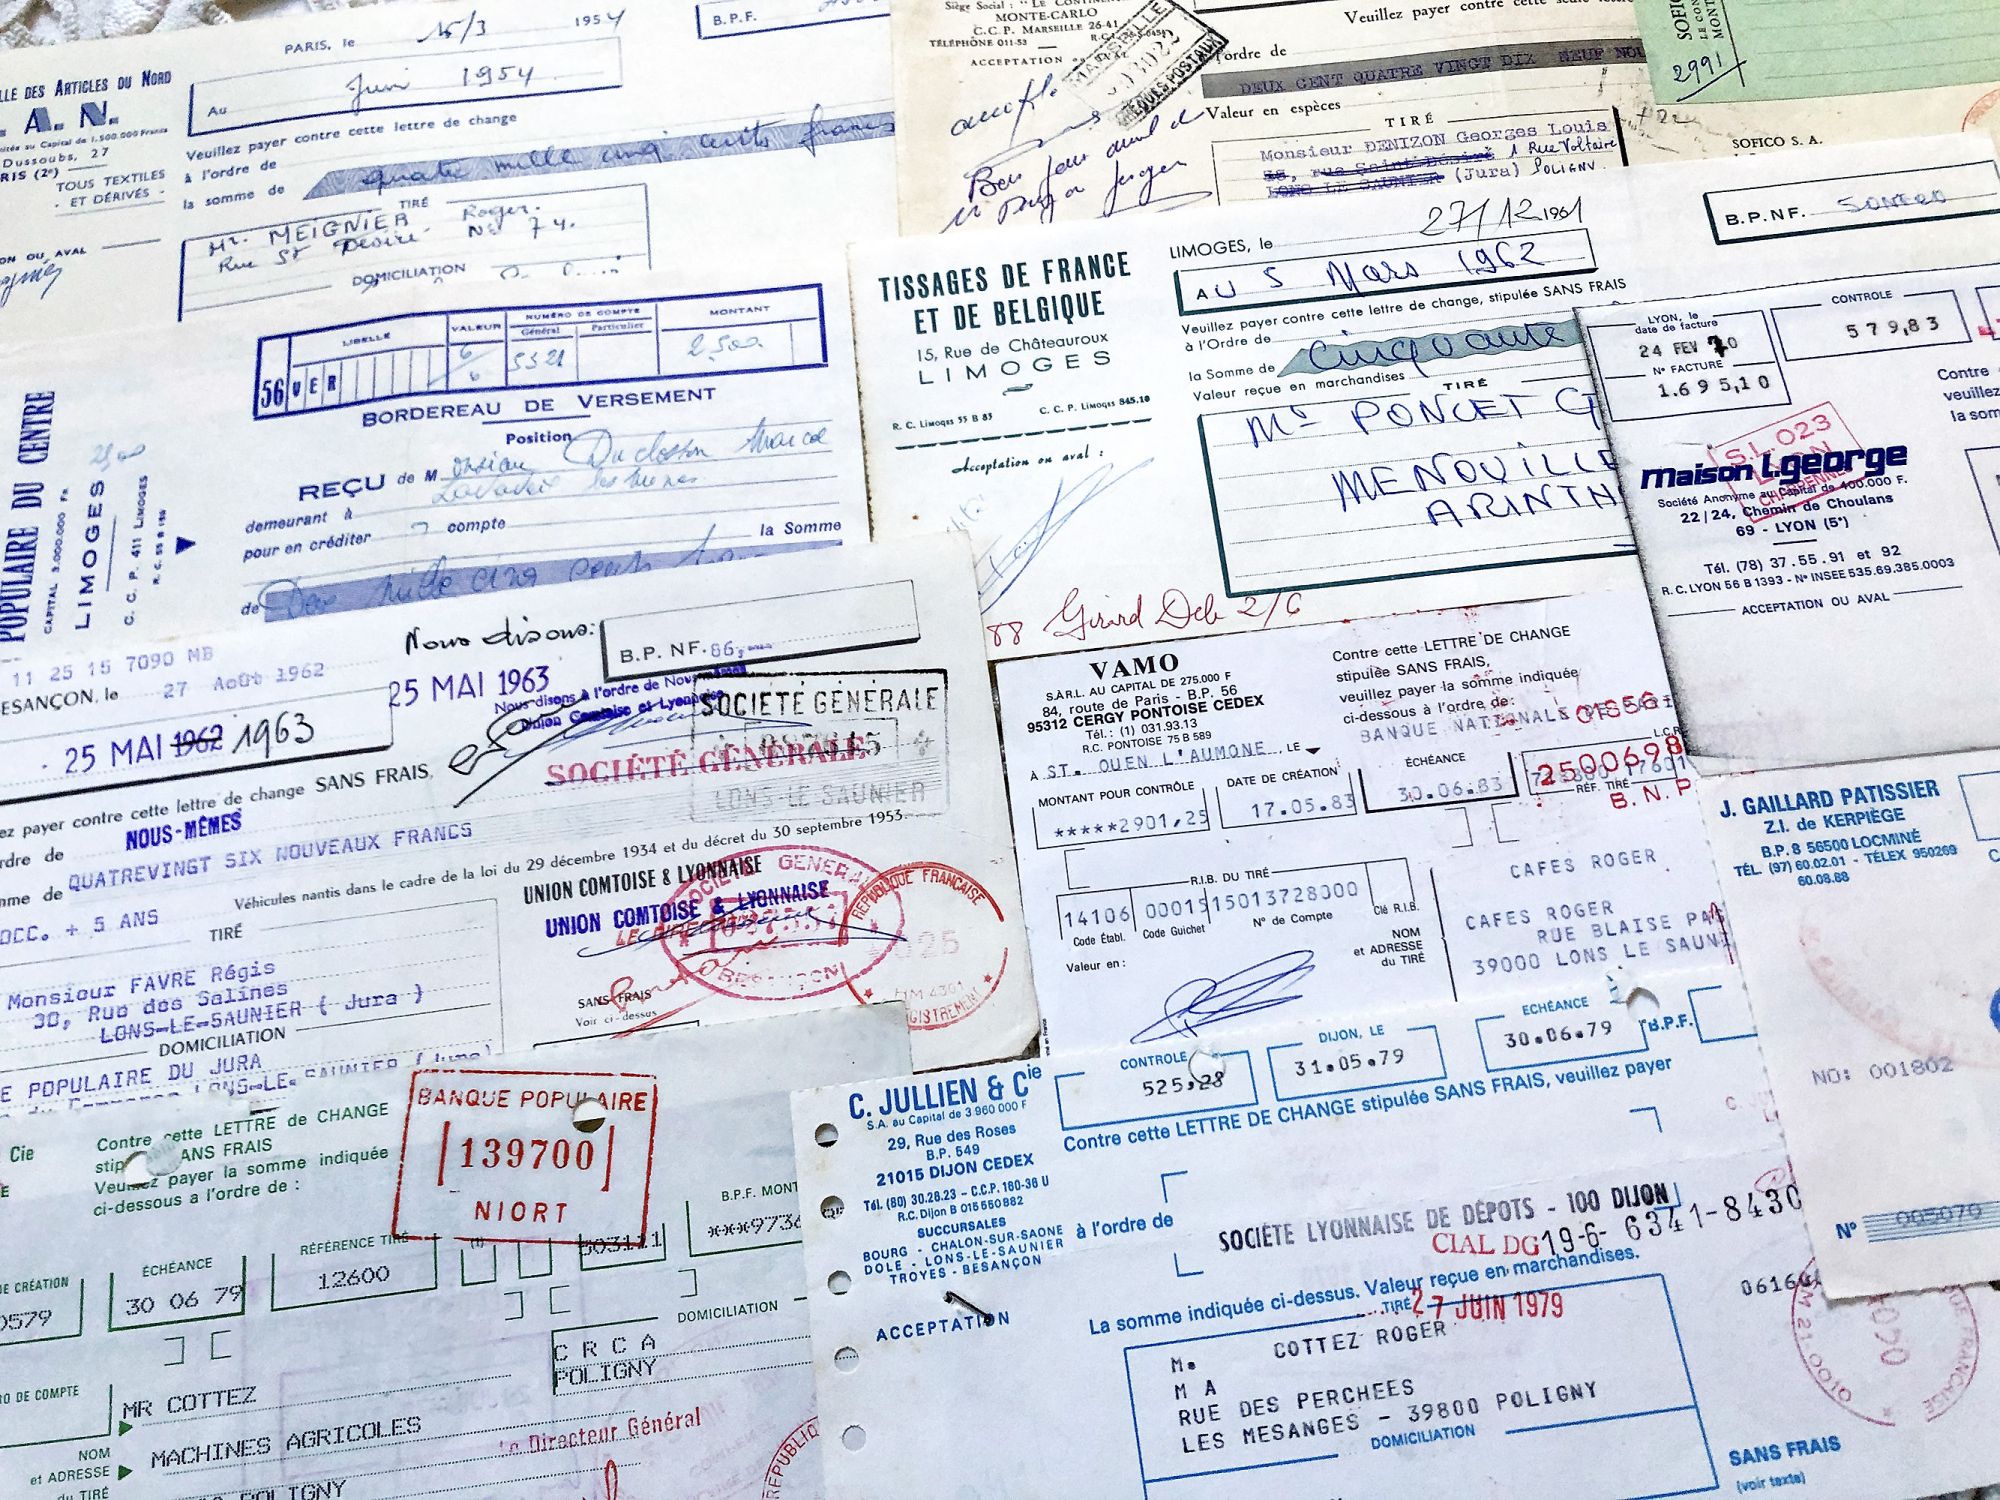 PARIS, le 15/3 1954
B.P.F.
LLE DES ARTICLES DU NORD
A. N.
Au Juin 1954
Dussoubs, 27
RIS (2e)
TOUS TEXTILES
- ET DÉRIVÉS -
Veuillez payer contre cette lettre de change
à l'ordre de
la somme de quatre mille cinq cents francs
TIRÉ
Mr. MEIGNIER Roger
Rue St Désiré No 74.
DOMICILIATION
ON OU AVAL
Siège Social : "LE CONTINEN
MONTE-CARLO
C.C.P. MARSEILLE 26-41
TÉLÉPHONE 011-53
MARSEILLE
CHÈQUES POSTAUX
Veuillez payer contre cette seule lettre
l'ordre de
DEUX CENT QUATRE VINGT DIX NEUF NOU
Valeur en espèces
TIRÉ
Monsieur DENIZON Georges Louis
18, rue Saint Désiré 1 Rue Voltaire
LONS LE SAUNIER (Jura) POLIGNY.
Bon pour aval
SOFICO
2991
SOFICO S. A.
B.P.NF.
56 VER
LIBELLÉ
VALEUR
NUMÉRO DE COMPTE
Général
Particulier
MONTANT
5321
2,500
BORDEREAU DE VERSEMENT
Position
REÇU de M
demeurant à
pour en créditer compte
la Somme
de Deux mille cinq cents
POPULAIRE DU CENTRE
CAPITAL 3.000.000 Fr
LIMOGES
C. C. P. 411 LIMOGES
TISSAGES DE FRANCE
ET DE BELGIQUE
15, Rue de Châteauroux
LIMOGES
R. C. Limoges 55 B 83
C. C. P. Limoges 845.10
Acceptation ou aval :
LIMOGES, le 27/12 1961
AU 5 Mars 1962
Veuillez payer contre cette lettre de change, stipulée SANS FRAIS
à l'Ordre de
la Somme de cinquante
Valeur reçue en marchandises
TIRÉ
Mr PONCET G
MENOUILLE
ARINTH
88 Girard Deb 2/6
LYON, le
date de facture
24 FEV 70
N° FACTURE
1.695,10
CONTROLE
579,83
Contre
veuillez
la som
S.L. 023
LYON
CHARPENNES
maison l.george
Société Anonyme au Capital de 400.000 F.
22/24, Chemin de Choulans
69 - LYON (5e)
Tél. (78) 37.55.91 et 92
R.C. LYON 56 B 1393 - N° INSEE 535.69.385.0003
ACCEPTATION OU AVAL
11 25 15 7090 MB
ESANÇON, le 27 Août 1962
25 MAI 1962 1963
Nous disons:
25 MAI 1963
B.P. NF. 86
Nous disons à l'ordre de Nous-mêmes
Union Comtoise et Lyonnaise
SOCIÉTÉ GÉNÉRALE
LONS-LE SAUNIER
SOCIÉTÉ GÉNÉRALE
ez payer contre cette lettre de change SANS FRAIS,
rdre de NOUS-MÊMES
mme de QUATREVINGT SIX NOUVEAUX FRANCS
Véhicules nantis dans le cadre de la loi du 29 décembre 1934 et du décret du 30 septembre 1953.
OCC. + 5 ANS
TIRÉ
UNION COMTOISE & LYONNAISE
UNION COMTOISE & LYONNAISE
SOCIÉTÉ GÉNÉRALE
BESANÇON
RÉPUBLIQUE FRANÇAISE
ENREGISTREMENT
Monsieur FAVRE Régis
30, Rue des Salines
LONS-LE-SAUNIER ( Jura )
DOMICILIATION
E POPULAIRE DU JURA
LONS-LE-SAUNIER
SANS FRAIS
Voir ci-dessus
VAMO
S.A.R.L. AU CAPITAL DE 275.000 F
84, route de Paris - B.P. 56
95312 CERGY PONTOISE CEDEX
Tél. : (1) 031.93.13
R.C. PONTOISE 75 B 589
Contre cette LETTRE DE CHANGE
stipulée SANS FRAIS,
veuillez payer la somme indiquée
ci-dessous à l'ordre de :
BANQUE NATIONALE DE PARI
À ST. OUEN L'AUMONE, LE
MONTANT POUR CONTRÔLE
*****2901,25
DATE DE CRÉATION
17.05.83
ÉCHÉANCE
30.06.83
2500698
RÉF. TIRÉ
B. N. P
R.I.B. DU TIRÉ
14106 00015 15013728000
Code Établ.
Code Guichet
N° de Compte
Clé R.I.B.
Valeur en :
NOM
et ADRESSE
du TIRÉ
CAFES ROGER
CAFES ROGER
RUE BLAISE PAS
39000 LONS LE SAUN
J. GAILLARD PATISSIER
Z.I. de KERPIÈGE
B.P. 8 56500 LOCMINÉ
TÉL. (97) 60.02.01 - TÉLEX 950269
60.08.88
NO: 001802
N° 005070
Cie
Contre cette LETTRE de CHANGE
stip ANS FRAIS
Veuillez payer la somme indiquée
ci-dessous a l'ordre de :
BANQUE POPULAIRE
139700
NIORT
B.P.F. MONT
***9736
DE CRÉATION
0579
ÉCHÉANCE
30 06 79
RÉFÉRENCE TIRÉ
12600
(1)
503111
DOMICILIATION
C R C A
POLIGNY
RO DE COMPTE
MR COTTEZ
MACHINES AGRICOLES
POLIGNY
NOM
et ADRESSE
du TIRÉ
Le Directeur Général
C. JULLIEN & Cie
S.A. au Capital de 3 960 000 F
29, Rue des Roses
B.P. 549
21015 DIJON CEDEX
Tél. (80) 30.26.23 - C.C.P. 160-36 U
R.C. Dijon B 015 550 882
SUCCURSALES
BOURG - CHALON-SUR-SAONE
DOLE - LONS-LE-SAUNIER
TROYES - BESANÇON
ACCEPTATION
CONTROLE
525,28
DIJON, LE
31.05.79
ECHÉANCE
30.06.79
B.P.F.
Contre cette LETTRE DE CHANGE stipulée SANS FRAIS, veuillez payer
à l'ordre de
SOCIÉTÉ LYONNAISE DE DÉPOTS - 100 DIJON
CIAL DG 19-6- 6341-8430
La somme indiquée ci-dessus. Valeur reçue en marchandises.
TIRÉ
27 JUIN 1979
M. COTTEZ ROGER
M A
RUE DES PERCHEES
LES MESANGES - 39800 POLIGNY
DOMICILIATION
SANS FRAIS
(voir texte)